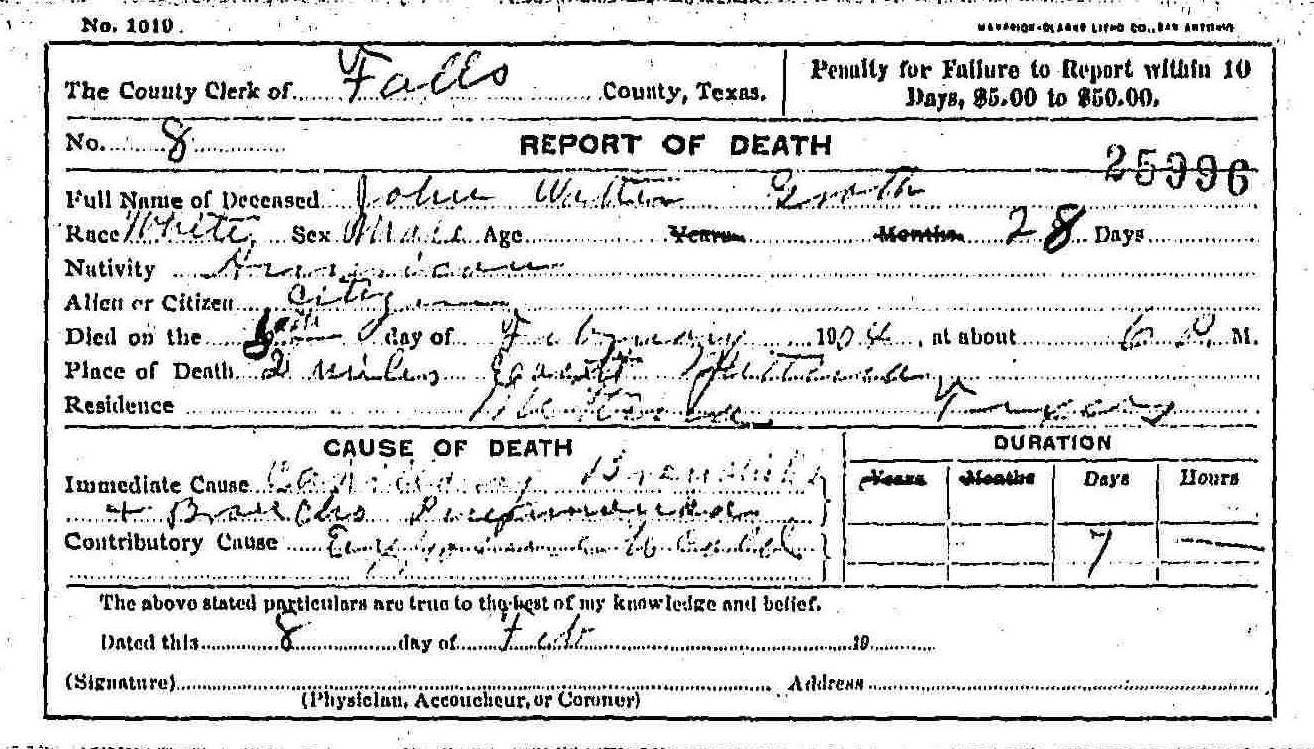 No. 1019. MAVERICK-CLARKE LITHO CO., SAN ANTONIO
The County Clerk of Falls County, Texas. Penalty for Failure to Report within 10
Days, $5.00 to $50.00.
No. 8 REPORT OF DEATH
25996
Full Name of Deceased John
Race White Sex Male Age Years Months 28 Days
Nativity American
Alien or Citizen Citizen
Died on the day of February 1904, at about 6 P. M.
Place of Death 2 miles
Residence Texas
CAUSE OF DEATH DURATION
Immediate Cause Capillary Bronchitis Years Months Days Hours
+ Broncho
Contributory Cause 7
The above stated particulars are true to the best of my knowledge and belief.
Dated this 8 day of Feb 19
(Signature) Address
(Physician, Accoucheur, or Coroner)